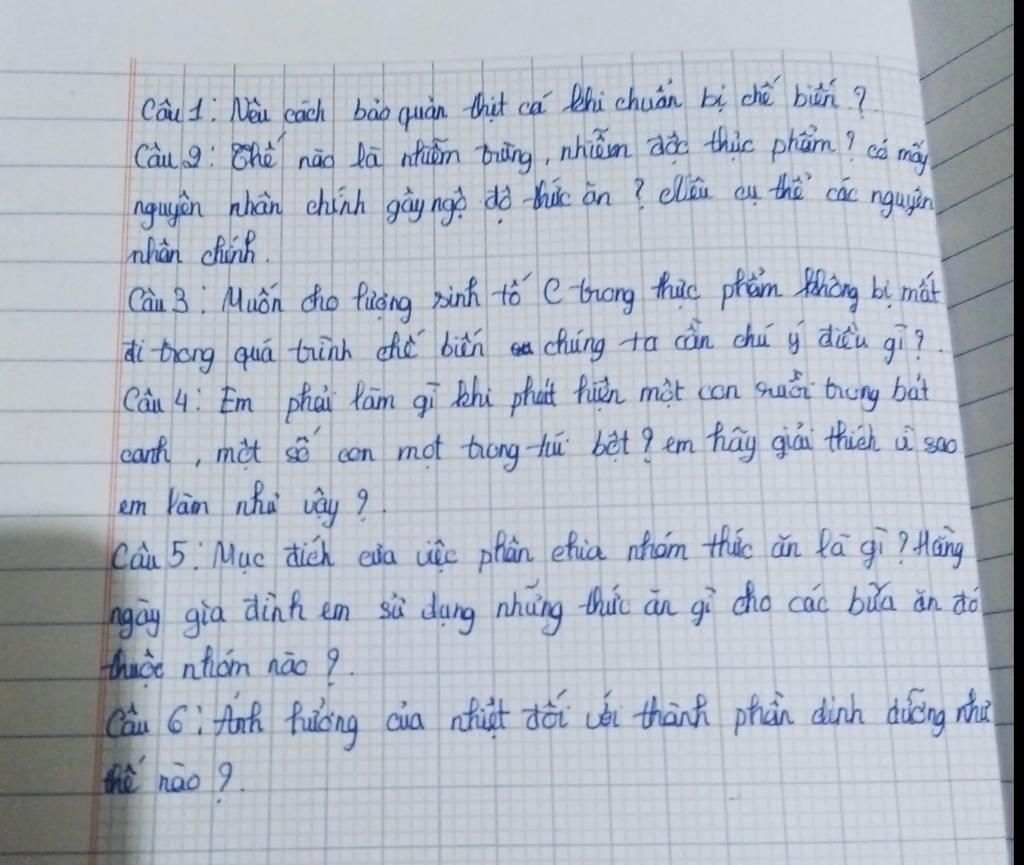 Câu 1: Nêu cách bảo quản thịt cá khi chuẩn bị chế biến?
Câu 2: Thế nào là nhiễm trùng, nhiễm độc thực phẩm? có mấy
nguyên nhân chính gây ngộ độ thức ăn? Nêu cụ thể các nguyên
nhân chính.
Câu 3: Muốn cho lượng sinh tố C trong thực phẩm không bị mất
đi trong quá trình chế biến chúng ta cần chú ý điều gì?
Câu 4: Em phải làm gì khi phát hiện một con ruồi trong bát
canh, một số con mọt trong túi bột? em hãy giải thích vì sao
em làm như vậy?
Câu 5: Mục đích của việc phân chia nhóm thức ăn là gì? Hằng
ngày gia đình em sử dụng những thức ăn gì cho các bữa ăn đó
thuộc nhóm nào?
Câu 6: Ảnh hưởng của nhiệt đối với thành phần dinh dưỡng như
thế nào?